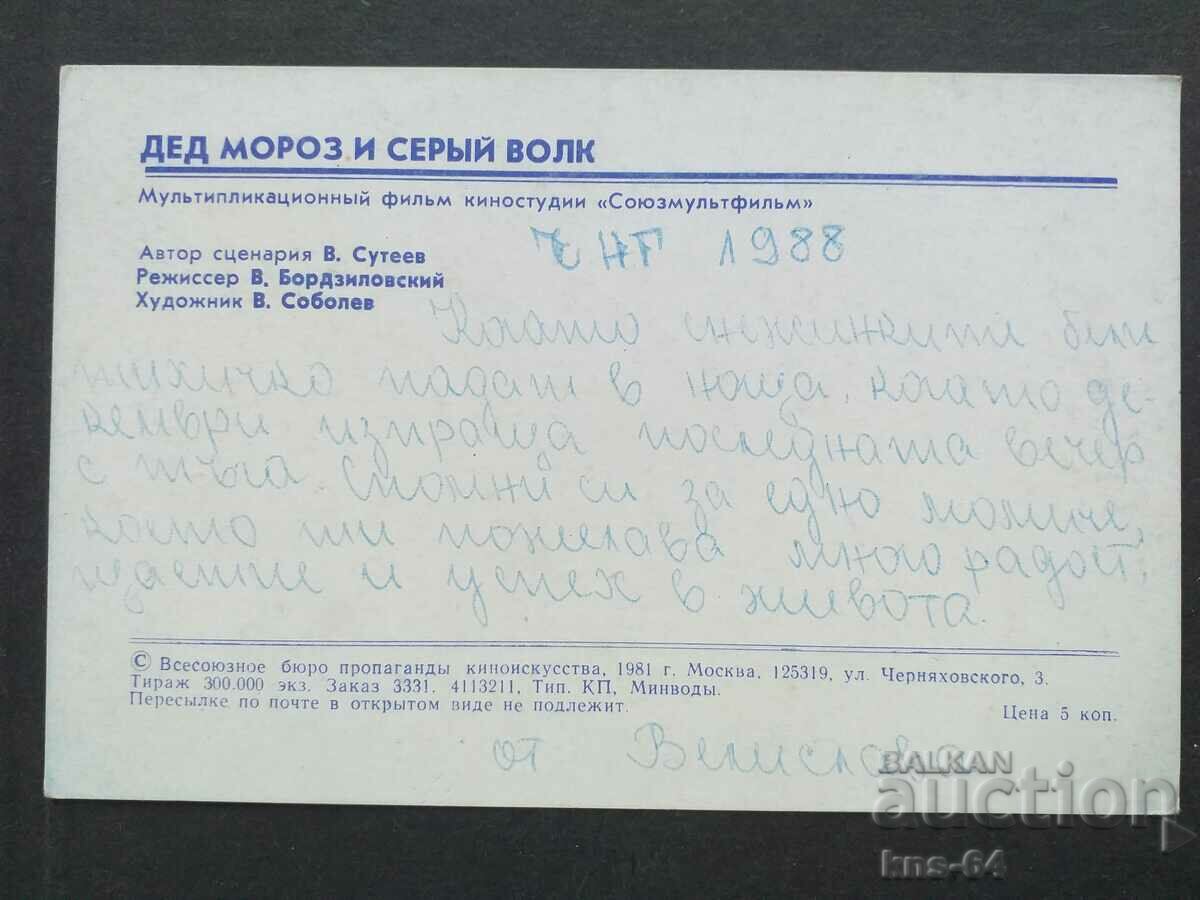 ДЕД МОРОЗ И СЕРЫЙ ВОЛК
Мультипликационный фильм киностудии «Союзмультфильм»
Автор сценария В. Сутеев
Режиссер В. Бордзиловский
Художник В. Соболев
ЧНГ 1988
Когато снежинките бели
тихичко падат в нощта, когато де-
кември изпраща последната вечер
с тъга. Спомни си за едно момиче,
което ти пожелава много радост,
щастие и успех в живота.
© Всесоюзное бюро пропаганды киноискусства, 1981 г. Москва, 125319, ул. Черняховского, 3.
Тираж 300.000 экз. Заказ 3331. 4113211, Тип. КП, Минводы.
Пересылке по почте в открытом виде не подлежит.
Цена 5 коп.
от Велислава
BALKAN
auction
kns-64